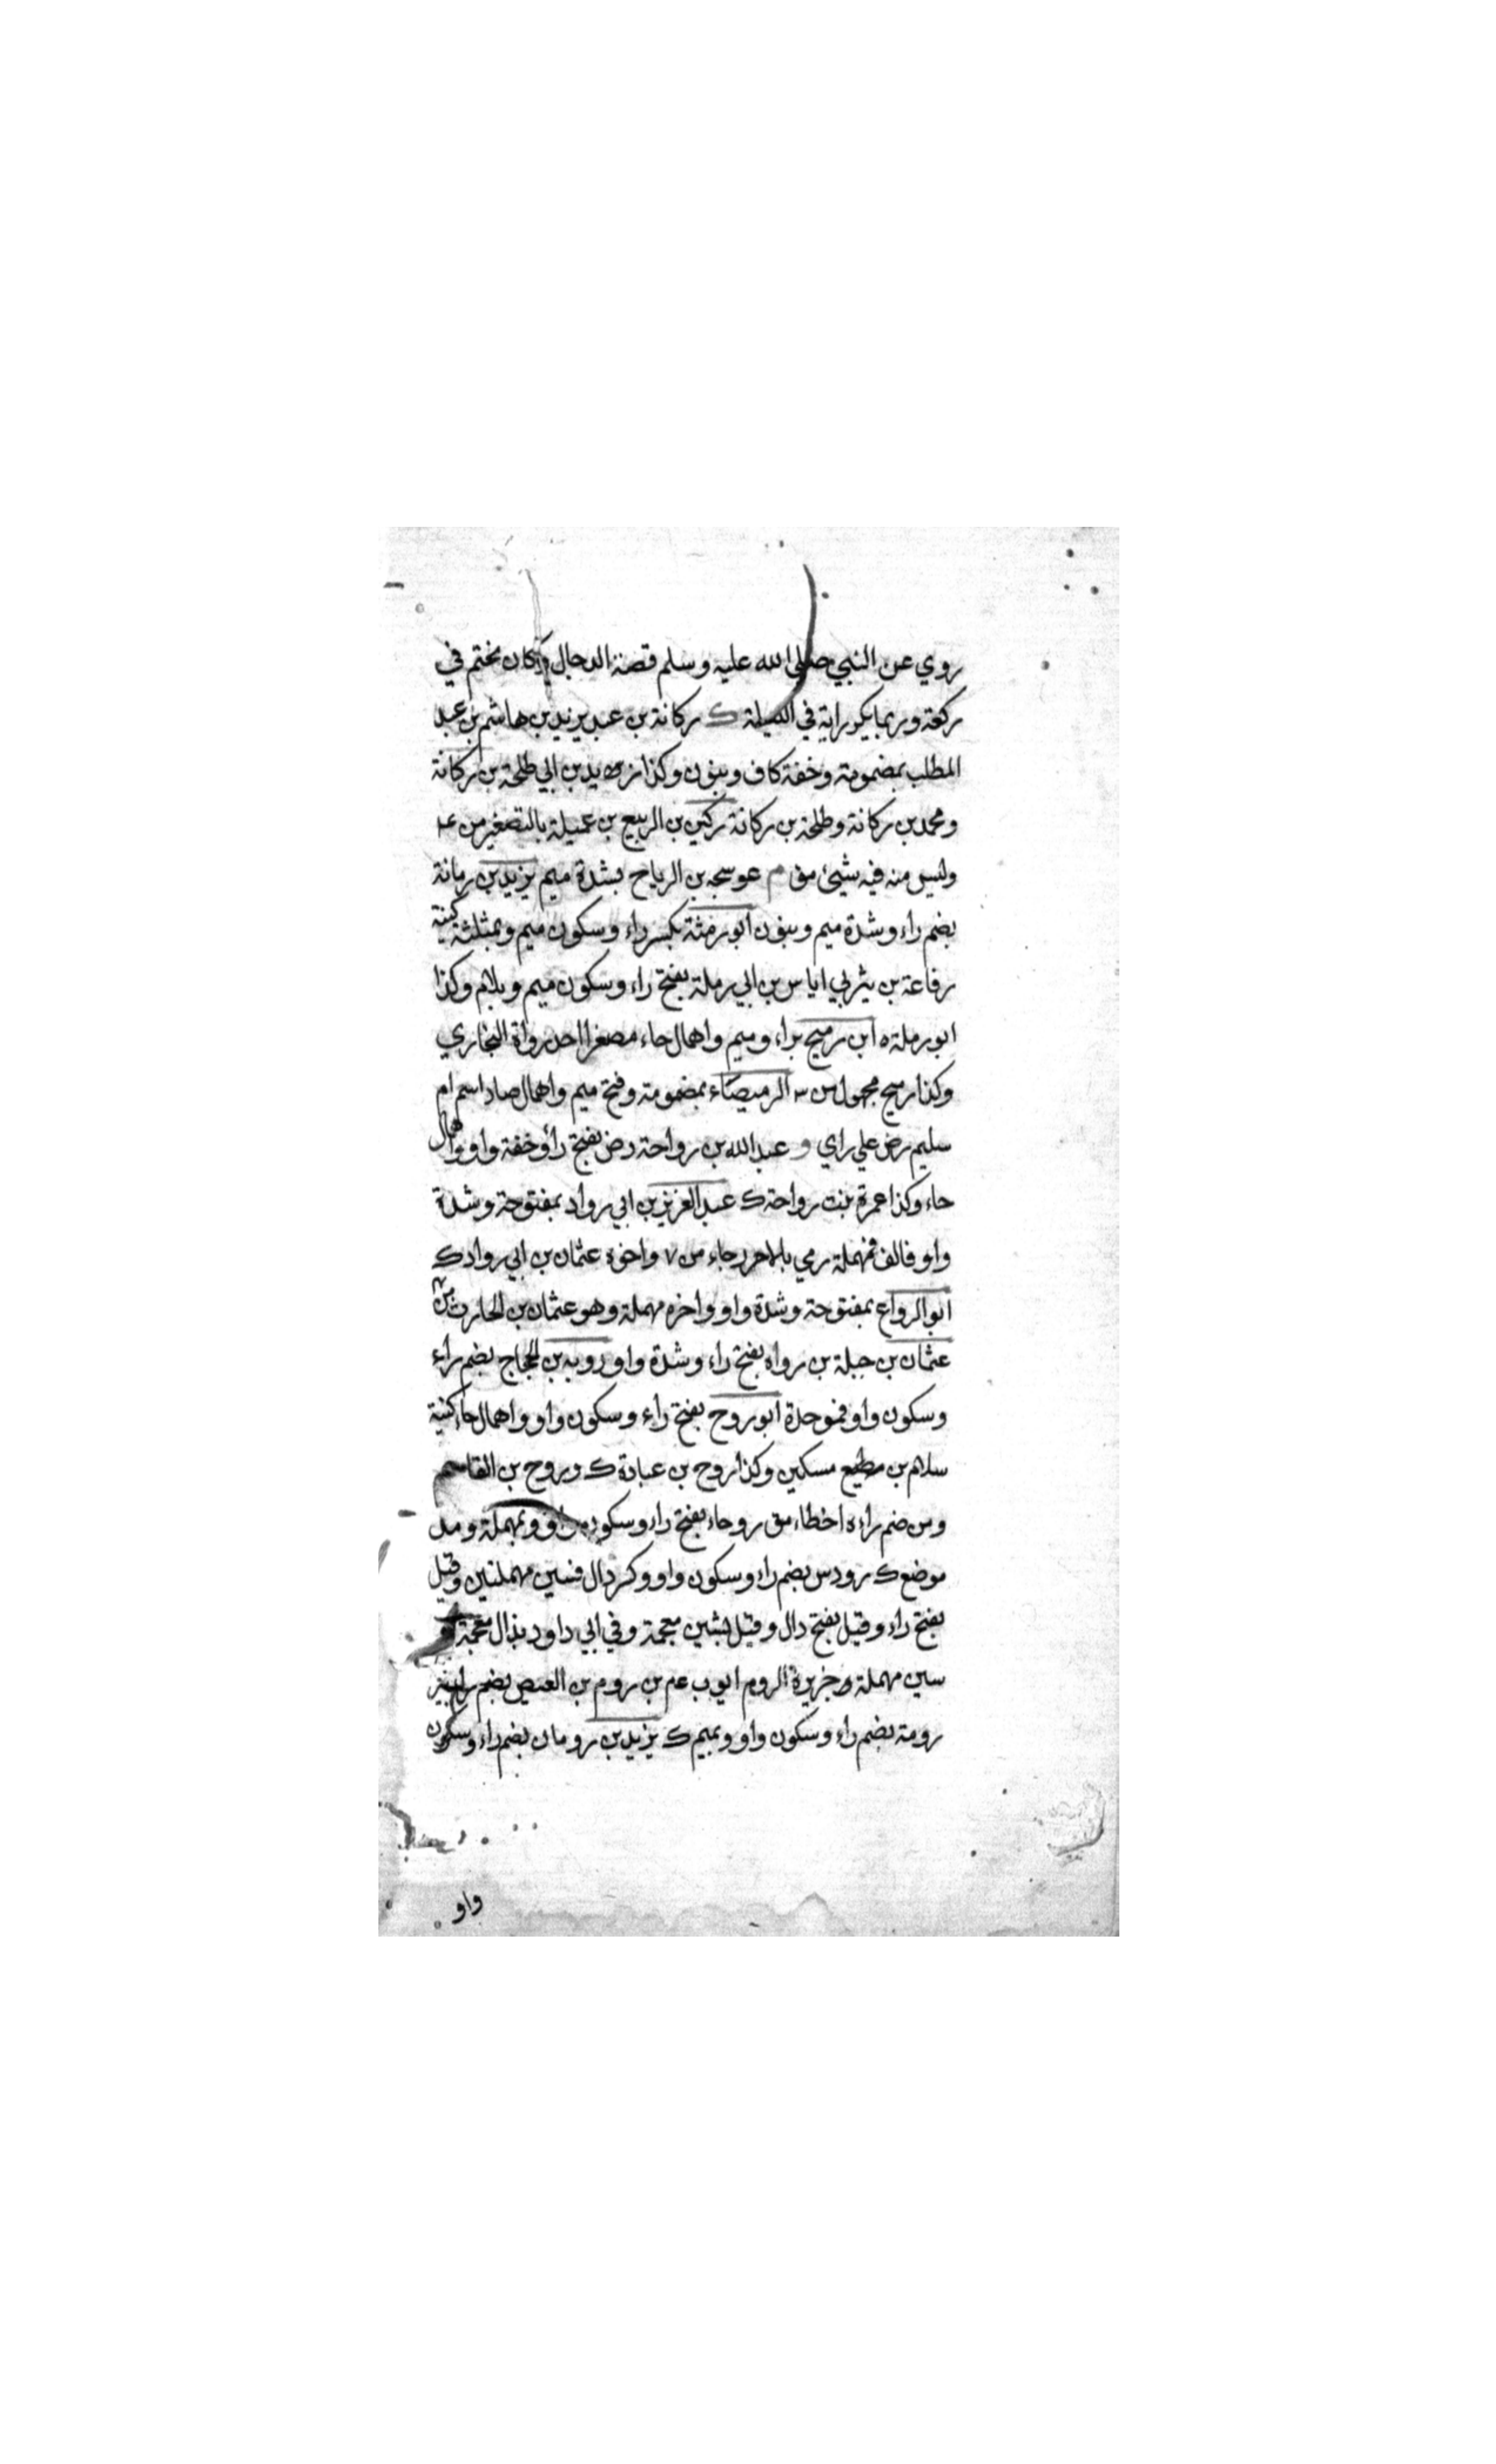 روي عن النبي صلى الله عليه وسلم قصة الدجال وكان يختم في
ركعة وربما يكرر اية في الليلة ك ركانة بن عبد يزيد بن هاشم بن عبد
المطلب بمضمومة وخفة كاف وبنون وكذا يزيد بن ابي طلحة بن ركانة
ومحمد بن ركانة وطلحة بن ركانة ركين بن الربيع بن عميلة بالتصغير من ع
وليس منه فيه شيئ مق م عوسجه بن الرماح بشدة ميم يزيد بن رمانة
بضم راء وشدة ميم وبنون ابو رمثة بكسر راء وسكون ميم وبمثلثة كنية
رفاعة بن يثربي اياس بن ابي رملة بفتح راء وسكون ميم وبلام وكذا
ابو رملة ه ابن رميح براء وميم واهمال حاء مصغرا احد رواة البخاري
وكذا رميح مجهول من س الرميصاء بمضمومة وفتح ميم واهمال صاد اسم ام
سليم رض علي راي و عبد الله بن رواحة رض بفتح راء وخفة واو واهمال
حاء وكذا عمرة بنت رواحة ك عبد العزيز بن ابي رواد بمفتوحة وشدة
واو فالف فمهملة رمي بالارجاء من ٧ واخوه عثمان بن ابي رواد ك
ابو الرواع بمفتوحة وشدة واو واخره مهملة وهو عثمان بن الحارث من
عثمان بن جبلة بن رواد بفتح راء وشدة واو روبه بن الحجاج بضم راء
وسكون واو فموحدة ابو روح بفتح راء وسكون واو واهمال حاء كنية
سلام بن مطيع مسكين وكذا روح بن عبادة ك وروح بن القاسم
ومن ضم راءه اخطاء مق روحاء بفتح راء وسكون واو وبمهملة ومد
موضع ك رودس بضم راء وسكون واو وكسر دال فسين مهملتين وقيل
بفتح راء وقيل بفتح دال وقيل بشين معجمة وفي ابي داود بذال معجمة و
سين مهملة جزيرة الروم ايوب عم بن روم بن العيص بضم راء بئر
رومة بضم راء وسكون واو وبميم ك يزيد بن رومان بضم راء وسكون
واو